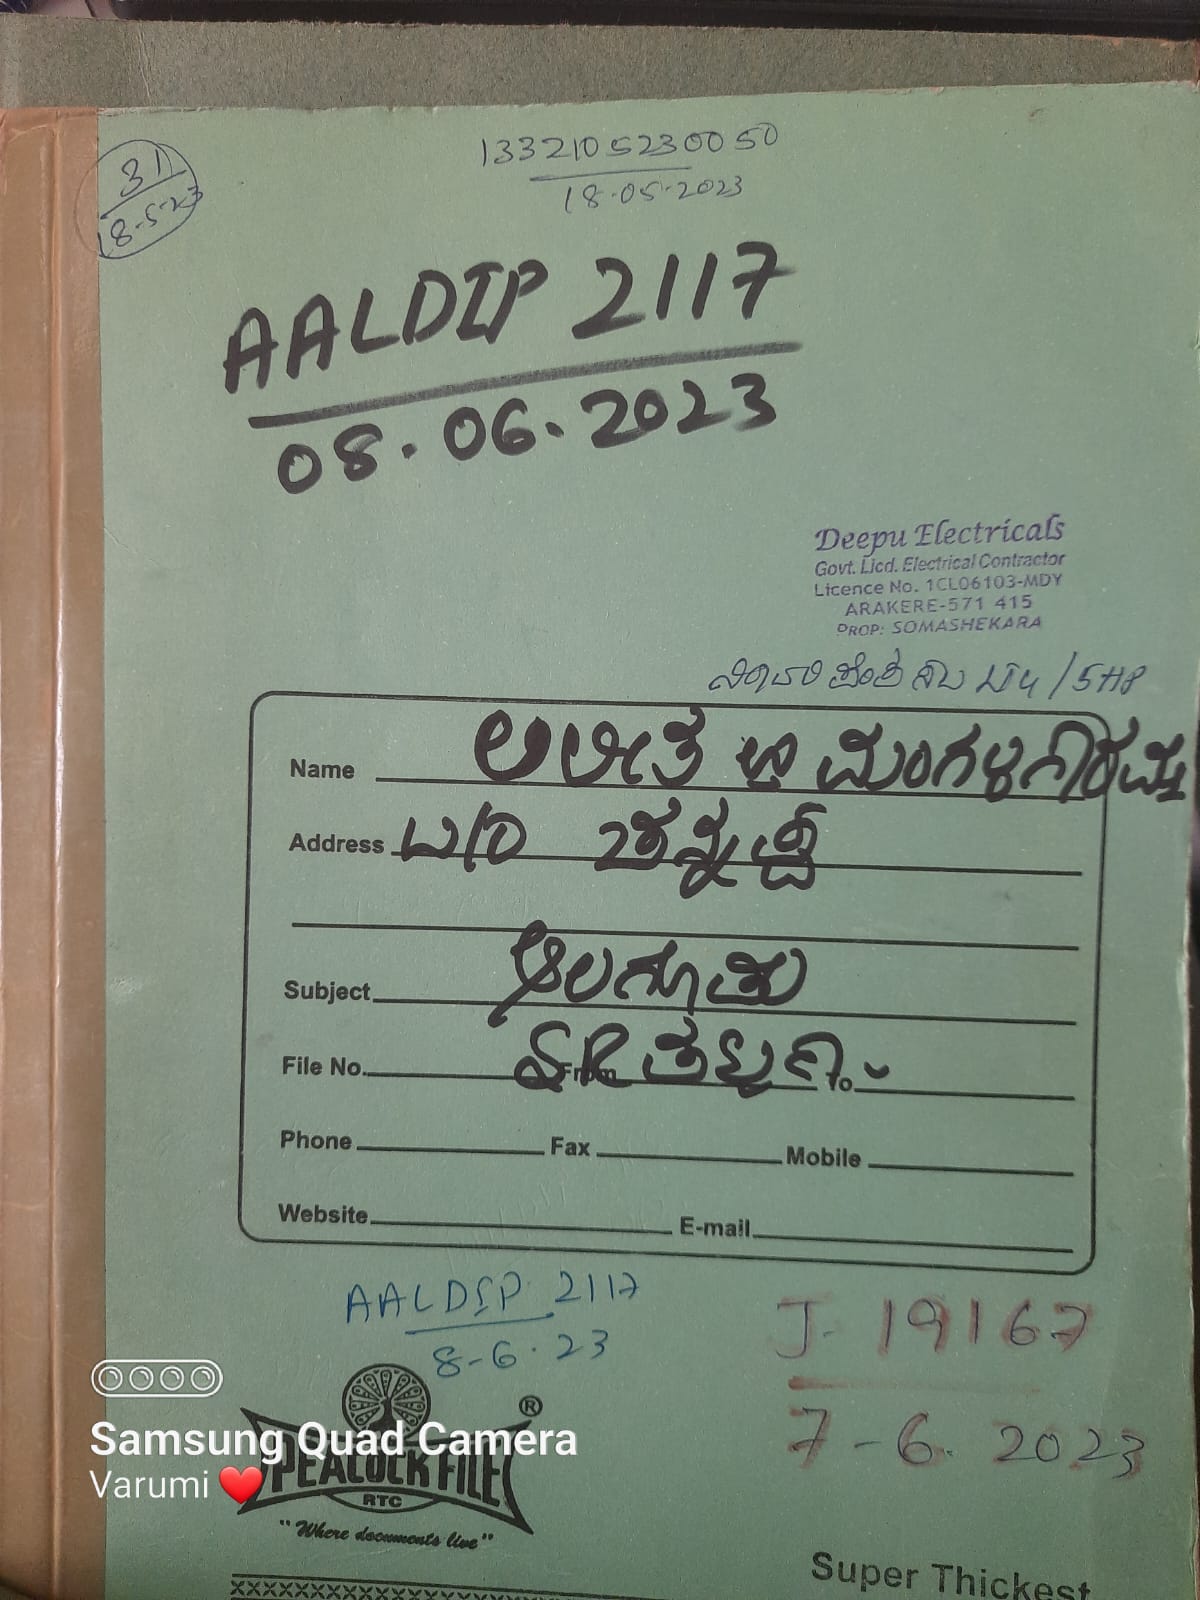 31
18-5-23
1332105230050
18.05.2023
AALDIP 2117
08.06.2023
Deepu Electricals
Govt. Licd. Electrical Contractor
Licence No. 1CL06103-MDY
ARAKERE-571 415
PROP: SOMASHEKARA
LT4/5HP
Name ಲಲಿತ ಮಂಗಳಗೌರಮ್ಮ
Address W/O ಚನ್ನಪ್ಪ
Subject ಆಲಗೂಡು
File No. From To
Phone Fax Mobile
Website E-mail
AALDIP 2117
8-6.23
J-19167
7-6.2023
Samsung Quad Camera
Varumi ❤️
PEACOCK FILE ®
RTC
"Where documents live"
Super Thickest